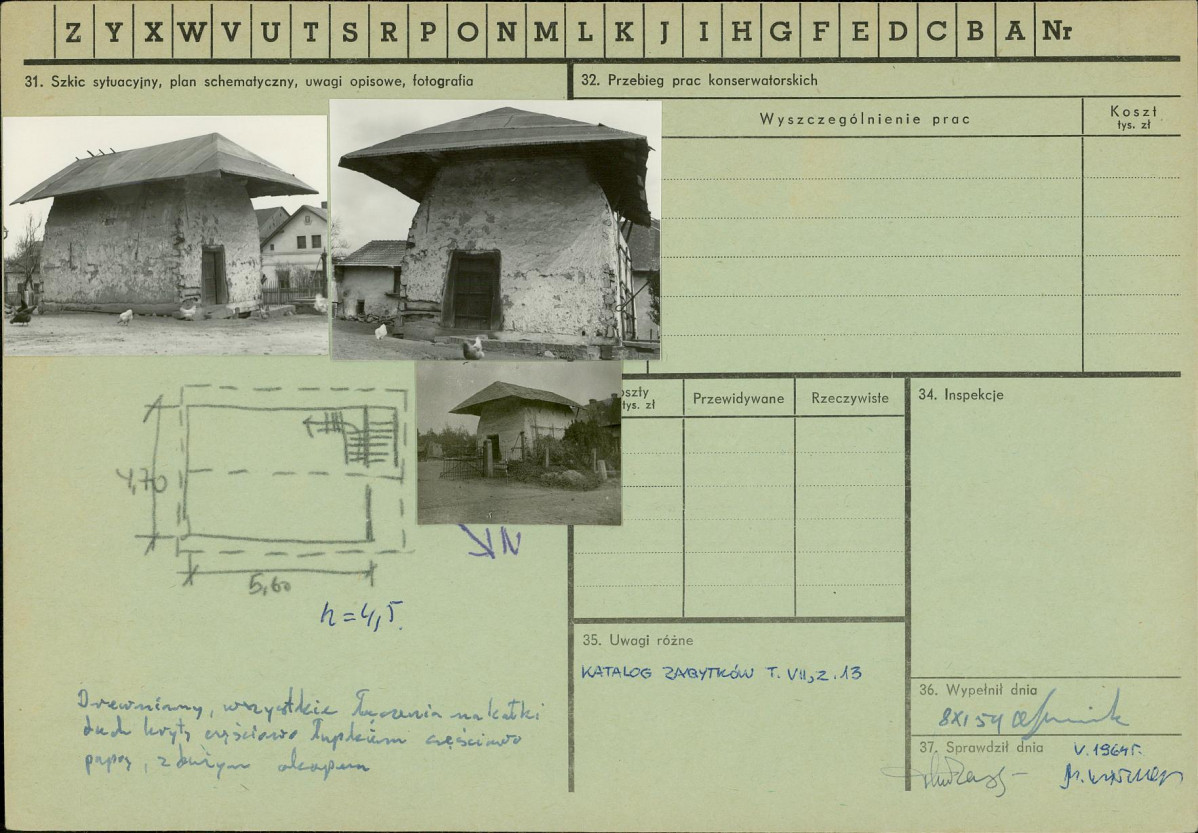 Z Y X W V U T S R P O N M L K J I H G F E D C B A Nr
31. Szkic sytuacyjny, plan schematyczny, uwagi opisowe, fotografia
32. Przebieg prac konserwatorskich
Wyszczególnienie prac
Koszt
tys. zł
oszty
tys. zł
Przewidywane
Rzeczywiste
34. Inspekcje
4,70
5,60
N
h=4,5
Drewniany, wszystkie łączenia na kołki
dach kryty częściowo łupkiem częściowo
papą, z dużym okapem
35. Uwagi różne
KATALOG ZABYTKÓW T. VII, Z. 13
36. Wypełnił dnia
8 XI 59
37. Sprawdził dnia
V. 1964 r.